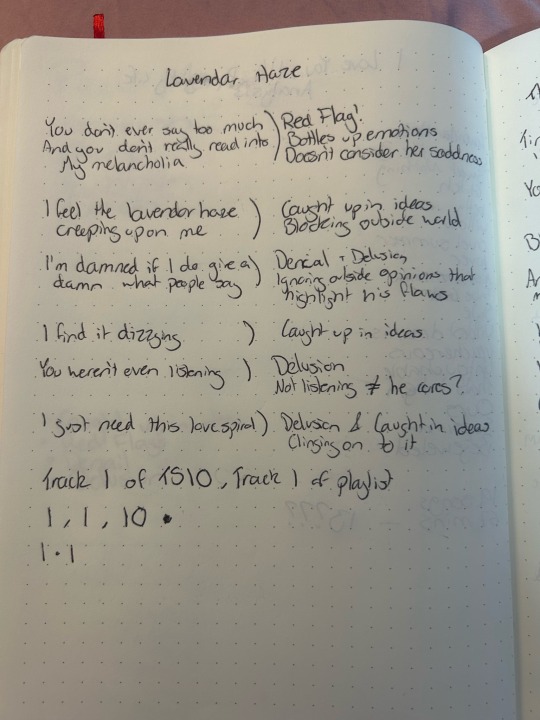 Lavendar Haze
You don't ever say too much ) Red Flag!
And you don't really read into ) Bottles up emotions
My melancholia Doesn't consider her saddness
I feel the lavendar haze ) Caught up in ideas
creeping upon me Blocking outside world
I'm damned if I do give a ) Denial + Delusion
damn what people say Ignoring outside opinions that
highlight his flaws
I find it dizzying ) Caught up in ideas
You weren't even listening ) Delusion
Not listening ≠ he cares?
I just need this love spiral ) Delusion & Caught in ideas
Clinging on to it
Track 1 of TS10, Track 1 of playlist
1, 1, 10 •
1 · 1